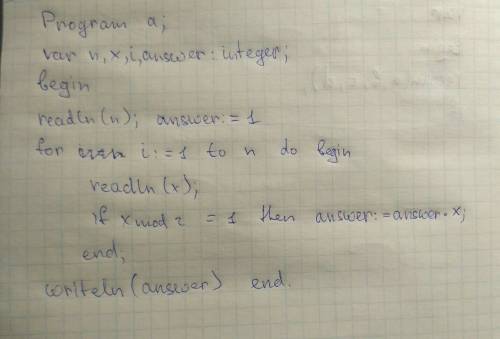 Program a;
var n, x, i, answer: integer;
begin
readln(n); answer:= 1
for i:= 1 to n do begin
readln(x);
if x mod 2 = 1 then answer:= answer * x;
end;
writeln(answer) end.